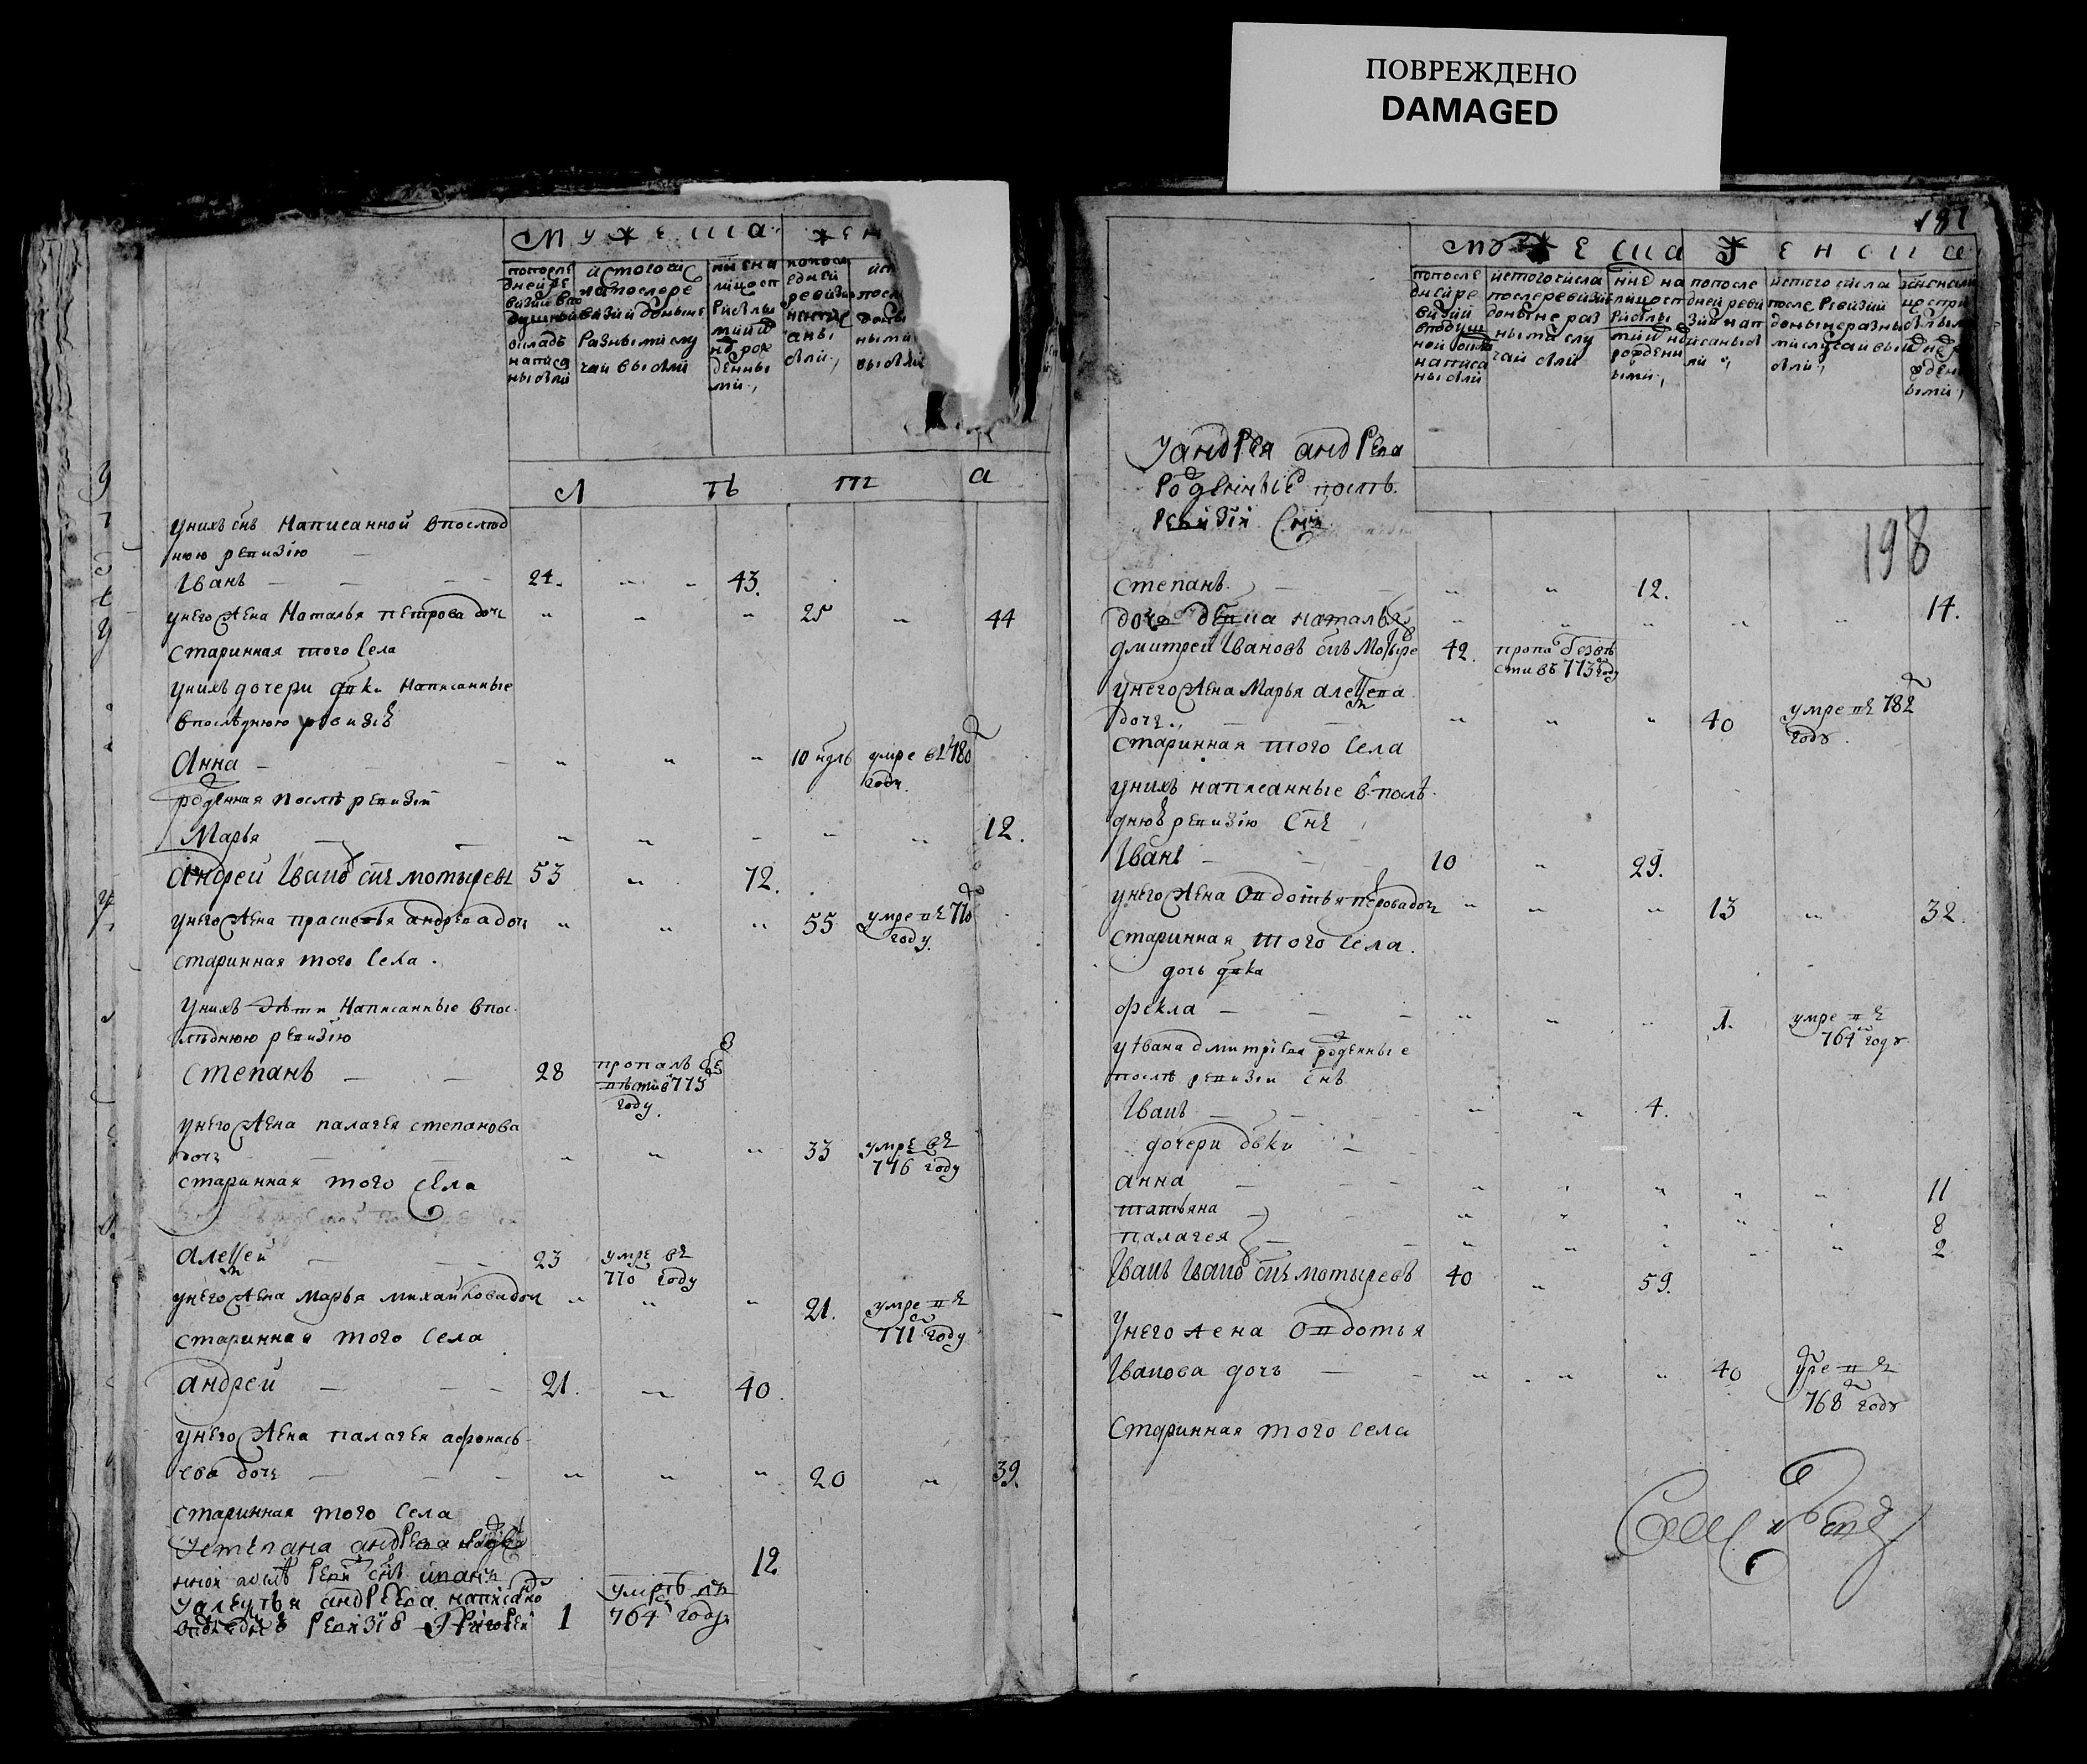 ПОВРЕЖДЕНО
DAMAGED
мужеска жен
попосле
дней ре
визии впо
душной
окладъ
написа
ны были
ис того чис
ла после ре
визии доныне
разными слу
чаи выбыли
ныне на
лицо с п
рибылы
ми и в
но рож
денны
ми
попосл
едней
ревизи
напис
аны
были
ист
посл
доны
ными
выбыли
л ѣ т а
унихъ снъ написанной впослѣд
нюю ревизiю
Iванъ 24. 43.
унего жена Наталья петрова дочь 25 44
старинная того села
унихъ дочери двки написанные
впослѣднюю ревизiю
Анна 10 ндль умре въ 780
году.
рожденная послѣ ревизiи
Марья 12.
Андрей Iвановъ снъ мотыревъ 53 72.
унего жена прасковья андрева дочь 55 умре въ 770
году.
старинная того села.
унихъ дѣти написанные впос
лѣднюю ревизiю
степанъ 28 пропалъ без
вѣсти в 773
году.
унего жена палагея степанова
дочь 33 умре въ
776 году
старинная того села
алексей 23 умре въ
770 году
унего жена марья михайлова дочь 21. умре въ
771 году
старинная того села
андрей 21. 40.
унего жена палагея афонась
ева дочь 20 39.
старинная того села
устепана андрева рожде
нной послѣ реви снъ иванъ 12
уалексѣя андреева написано
впоследнюю ревизiю Григорей 1 умрѣ въ
764 году
187
мужеска женска
попосле
дней ре
визии
вподуш
ной окла
написа
ны были
ис того числа
после ревизии
доныне раз
ными слу
чаи были
ныне на
лицо с п
рибылы
ми и но
рожденн
ыми
попосле
дней реви
зии нап
исаны бы
ли
ис того числа
после ревизии
доныне разны
ми случаи вы
были
уандрея андрева
рожденные послѣ
ревизiи снъ
198
степанъ 12.
дочь девка наталья 14.
дмитрей Iвановъ снъ Мотыре 42. пропа безвѣ
сти въ 773 году
унего жена Марья алексева
дочь 40 умре въ 782
году.
старинная того села
унихъ написанные в послѣ
днюю ревизiю снъ
Iванъ 10 29.
унего жена Овдотья петрова дочь 13 32.
старинная того села.
дочь двка
фекла 1. умре въ
764 году
уIвана дмитрiева рожденные
послѣ ревизiи снъ
Iванъ 4.
дочери двки
анна 11
татьяна 8
палагея 2
Iванъ Iвановъ снъ мотыревъ 40 59.
Унего жена Овдотья
Iванова дочь 40 умре въ
768 году
старинная того села